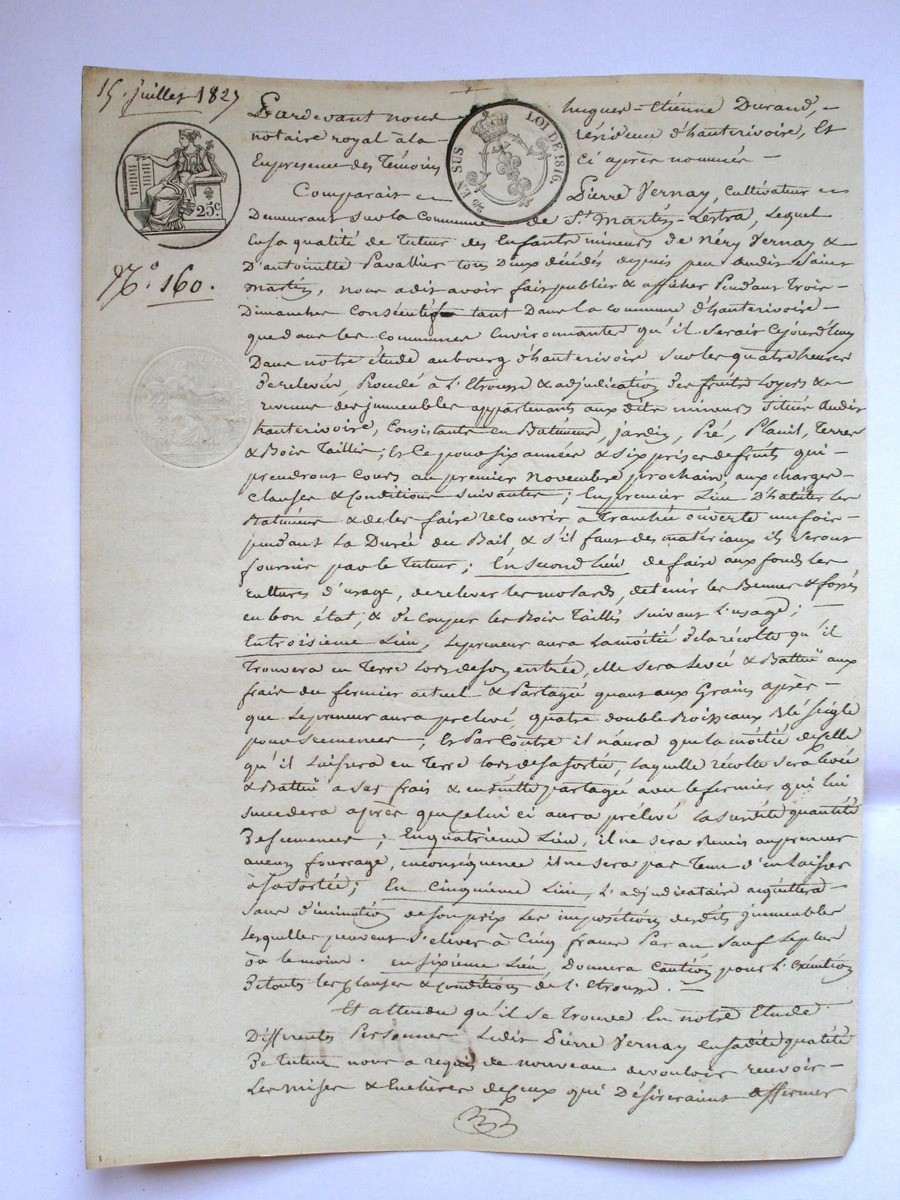 15. juillet 1827
Pardevant nous hugues-étienne Durand,
notaire royal à la résidence d'hauterivoire, et
En presence des Témoins ci après nommés
EN SUS
LOI DE 1816.
25c
N°. 160.
Comparait Pierre Vernay, cultivateur
Demeurant sur la Commune de St. Martin-Lestra, lequel
En sa qualité de tuteur des Enfants mineurs de Néry Vernay &
D'antoinette Pavallier tous Deux décédés depuis peu audit Saint
Martin, nous a dit avoir fait publier & afficher Pendant Trois
Dimanches Consécutifs tant Dans la commune d'hauterivoire
que dans les communes Environnantes qu'il serait Cejourd'huy
Dans notre étude au bourg d'hauterivoire sur les quatre heures
De relevée, Procédé à l'Etrousse & adjudication des fruits loyers &
revenus des immeubles appartenants aux dits mineurs Situés audit
hauterivoire, Consistants en Batiments, jardin, Pré, Terres
& Bois Taillis; Et Ce pour six années & six prises de fruits qui
prendront Cours au premier Novembre prochain, aux charges
Clauses & Conditions suivantes; En premier Lieu D'habiter les
Batiments & de les faire recouvrir à Tranchée ouverte une fois
pendant La Durée du Bail & s'il faut des matériaux ils seront
fournis par le Tuteur; En second Lieu de faire aux fonds les
cultures d'usage, de relever les mosards, de tenir les & fossés
en bon état, & de Couper les Bois Taillis suivant L'usage;
En troisieme Lieu, Le preneur aura La moitié de la récolte qu'il
Trouvera en Terre lors de son entrée, elle sera Levée & Battue aux
frais du fermier actuel & Partagée quant aux Grains après
que Le preneur aura prelevé, quatre double Boisseaux Blé seigle
pour semences; Et Par Contre il n'aura que la moitié de celle
qu'il Laissera en Terre lors de sa sortie, laquelle récolte sera levée
& Battue a ses frais & ensuite partagée avec le fermier qui lui
succedera après que celui ci aura prélevé la susdite quantité
De semences; En quatrieme Lieu, il ne sera Remis au preneur
aucun fourrage, en conséquence il ne sera pas Tenu d'en laisser
à sa sortie; En Cinquieme Lieu, L'adjudicataire acquittera
sans Diminution de son prix Les impositions desdits immeubles
Lesquelles peuvent S'élever à Cinq francs Par an Sauf Le plus
ou le moins. en sixieme Lieu, Donnera Caution pour L'exécution
De toutes les clauses & conditions de l'Etrousse.
Et attendu qu'il se Trouve En notre Etude
Differentes Personnes Ledit Pierre Vernay en sadite qualité
De tuteur nous a requis de nouveau de vouloir recevoir
Les mises & Encheres de Ceux qui Désireraient affermer